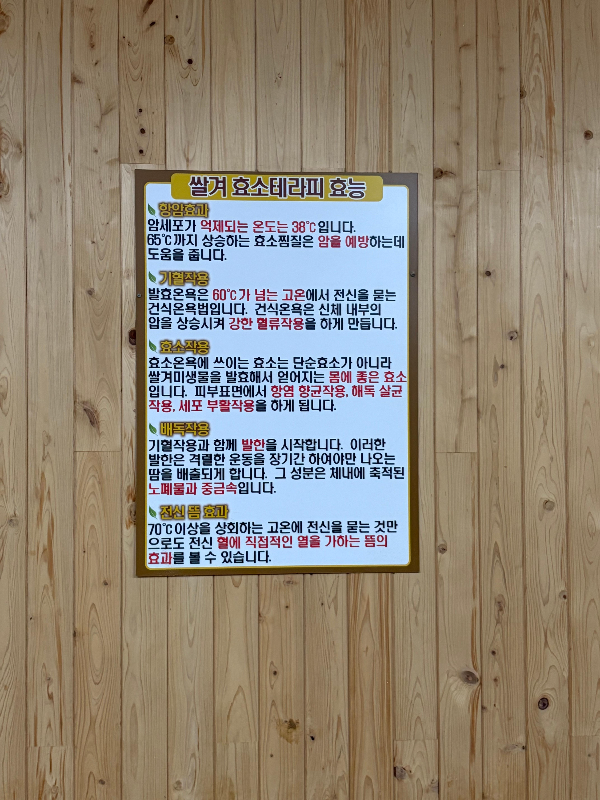 쌀겨 효소테라피 효능
항암효과
암세포가 억제되는 온도는 38℃입니다.
65℃까지 상승하는 효소찜질은 암을 예방하는데
도움을 줍니다.
기혈작용
발효온욕은 60℃가 넘는 고온에서 전신을 묻는
건식온욕법입니다. 건식온욕은 신체 내부의
압을 상승시켜 강한 혈류작용을 하게 만듭니다.
효소작용
효소온욕에 쓰이는 효소는 단순효소가 아니라
쌀겨미생물을 발효해서 얻어지는 몸에 좋은 효소
입니다. 피부표면에서 항염 향균작용, 해독 살균
작용, 세포 부활작용을 하게 됩니다.
배독작용
기혈작용과 함께 발한을 시작합니다. 이러한
발한은 격렬한 운동을 장기간 하여야만 나오는
땀을 배출되게 합니다. 그 성분은 체내에 축적된
노폐물과 중금속입니다.
전신 뜸 효과
70℃이상을 상회하는 고온에 전신을 묻는 것만
으로도 전신 혈에 직접적인 열을 가하는 뜸의
효과를 볼 수 있습니다.